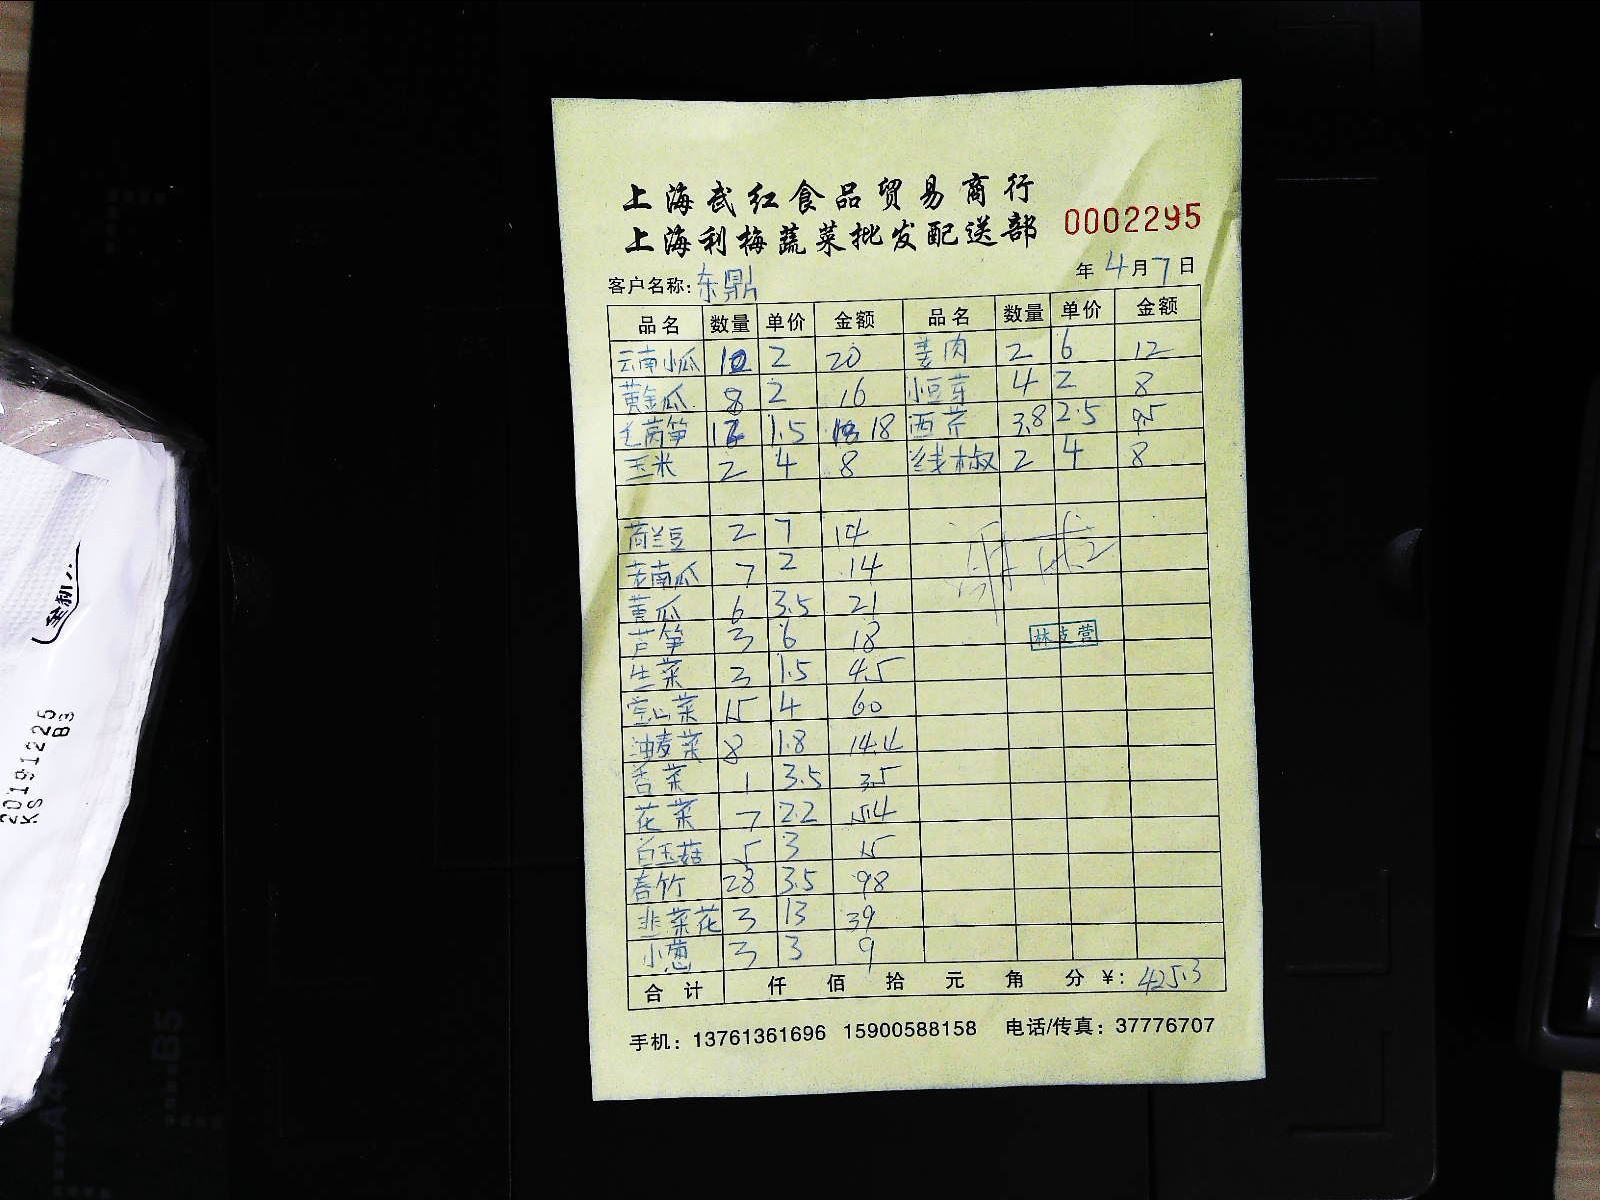 上海武红食品贸易商行
上海利梅蔬菜批发配送部
0002295
客户名称: 东鼎
年 4月7日
品名 数量 单价 金额 品名 数量 单价 金额
云南小瓜 10 2 20 姜肉 2 6 12
黄金瓜 8 2 16 小豆芽 4 2 8
莴笋 12 1.5 18 西芹 3.8 2.5 9.5
玉米 2 4 8 线椒 2 4 8
荷兰豆 2 7 14
老南瓜 7 2 14
黄瓜 6 3.5 21
芦笋 3 6 18
林支营
生菜 3 1.5 4.5
宝山菜 15 4 60
油麦菜 8 1.8 14.4
香菜 1 3.5 3.5
花菜 7 2.2 15.4
白玉菇 5 3 15
春竹 28 3.5 98
韭菜花 3 13 39
小葱 3 3 9
合计 仟 佰 拾 元 角 分 ¥: 425.3
手机: 13761361696 15900588158 电话/传真: 37776707
20191225
KS B3
B5
A4